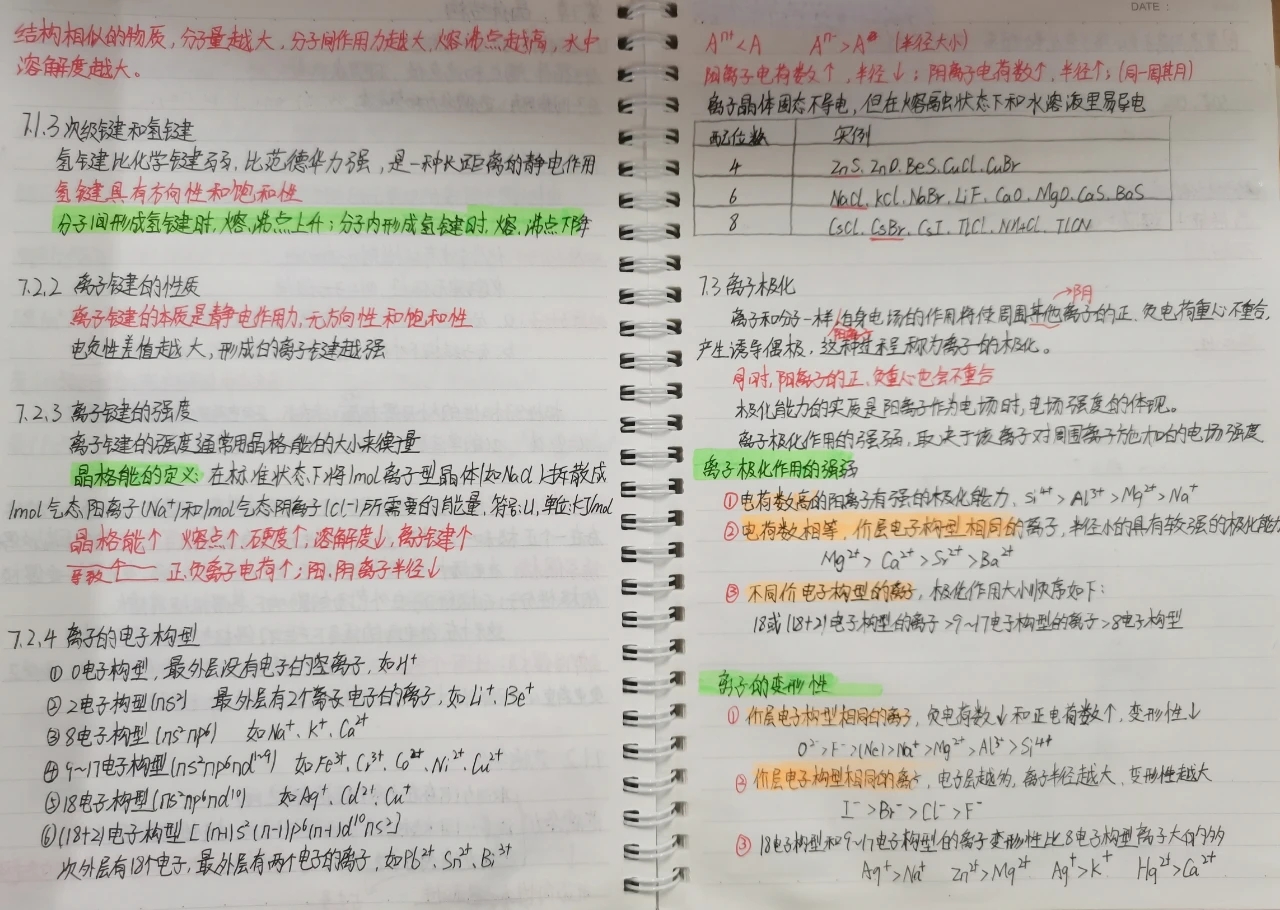 结构相似的物质，分子量越大，分子间作用力越大，熔沸点越高，水中
溶解度越大。
7.1.3 次级键和氢键
氢键比化学键弱，比范德华力强，是一种长距离的静电作用
氢键具有方向性和饱和性
分子间形成氢键时，熔、沸点上升；分子内形成氢键时，熔、沸点下降
7.2.2 离子键的性质
离子键的本质是静电作用力，无方向性和饱和性
电负性差值越大，形成的离子键越强
7.2.3 离子键的强度
离子键的强度通常用晶格能的大小来衡量
晶格能的定义：在标准状态下将1mol离子型晶体(如NaCl)拆散成
1mol气态阳离子(Na⁺)和1mol气态阴离子(Cl⁻)所需要的能量，符号U，单位kJ/mol
晶格能↑ 熔点↑、硬度↑、溶解度↓，离子键↑
导致↑ 正、负离子电荷↑；阳、阴离子半径↓
7.2.4 离子的电子构型
① 0电子构型，最外层没有电子的空离子，如H⁺
② 2电子构型(ns²) 最外层有2个离子电子的离子，如Li⁺、Be⁺
③ 8电子构型(ns²np⁶) 如Na⁺、K⁺、Ca²⁺
④ 9~17电子构型(ns²np⁶nd¹⁻⁹) 如Fe³⁺、Cr³⁺、Co²⁺、Ni²⁺、Cu²⁺
⑤ 18电子构型(ns²np⁶nd¹⁰) 如Ag⁺、Cd²⁺、Cu⁺
⑥ (18+2)电子构型[(n-1)s²(n-1)p⁶(n-1)d¹⁰ns²]
次外层有18个电子，最外层有两个电子的离子，如Pb²⁺、Sn²⁺、Bi³⁺
DATE：
Aⁿ⁺<A Aⁿ⁻>A (半径大小)
阳离子电荷数↑，半径↓；阴离子电荷数↑，半径↑；(同一周期)
离子晶体固态不导电，但在熔融状态下和水溶液里易导电
配位数 实例
4 ZnS、ZnO、BeS、CuCl、CuBr
6 NaCl、KCl、NaBr、LiF、CaO、MgO、CaS、BaS
8 CsCl、CsBr、CsI、TlCl、NH4Cl、TlCN
7.3 离子极化
→阴
离子和分子一样，自身电场的作用将使周围其他离子的正、负电荷重心不重合，
产生诱导偶极，这种过程称为离子的极化。
同时，阳离子的正、负重心也会不重合
极化能力的实质是阳离子作为电场时，电场强度的体现。
离子极化作用的强弱，取决于该离子对周围离子施加的电场强度
离子极化作用的强弱
①电荷数高的阳离子有强的极化能力，Si⁴⁺>Al³⁺>Mg²⁺>Na⁺
②电荷数相等，价层电子构型相同的离子，半径小的具有较强的极化能
Mg²⁺>Ca²⁺>Sr²⁺>Ba²⁺
③ 不同价电子构型的离子，极化作用大小顺序如下：
18或(18+2)电子构型的离子>9~17电子构型的离子>8电子构型
离子的变形性
①价层电子构型相同的离子，负电荷数↓和正电荷数↑，变形性↓
O²⁻>F⁻>(Ne)>Na⁺>Mg²⁺>Al³⁺>Si⁴⁺
②价层电子构型相同的离子，电子层越多，离子半径越大、变形性越大
I⁻>Br⁻>Cl⁻>F⁻
③ 18电子构型和9~17电子构型的离子变形性比8电子构型离子大的多
Ag⁺>Na⁺ Zn²⁺>Mg²⁺ Ag⁺>K⁺ Hg²⁺>Ca²⁺